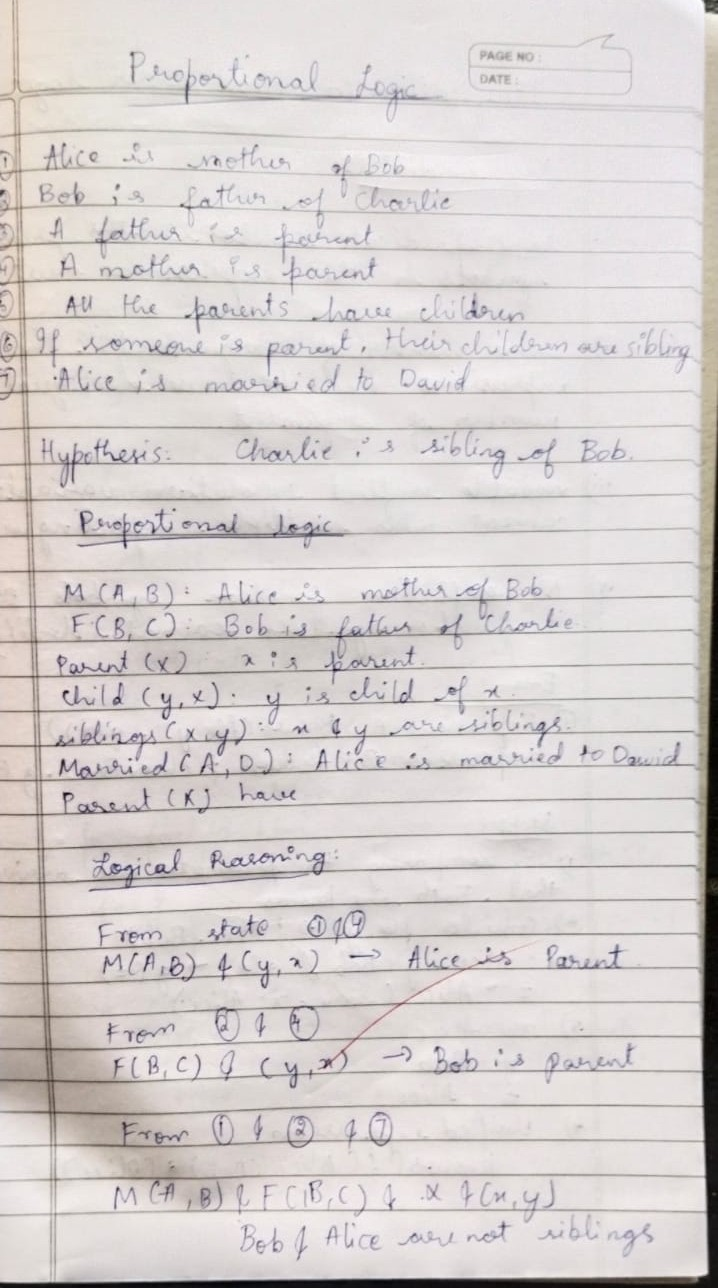 PAGE NO :
DATE :
Proportional Logic
① Alice is mother of Bob
② Bob is father of Charlie
③ A father is parent
④ A mother is parent
⑤ All the parents have children
⑥ If someone is parent, their children are sibling
⑦ Alice is married to David
Hypothesis: Charlie is sibling of Bob.
Proportional logic
M (A, B) : Alice is mother of Bob
F (B, C) : Bob is father of Charlie
Parent (x) x is parent.
child (y, x) : y is child of x
siblings (x, y) : x & y are siblings.
Married (A, D) : Alice is married to David
Parent (X) have
Logical Reasoning:
From state ① & ④
M(A,B) & (y, x) → Alice is Parent
From ② & ④
F(B, C) & (y, x) → Bob is parent
From ① & ② & ⑦
M (A, B) & F (B, C) & x & (x, y)
Bob & Alice are not siblings